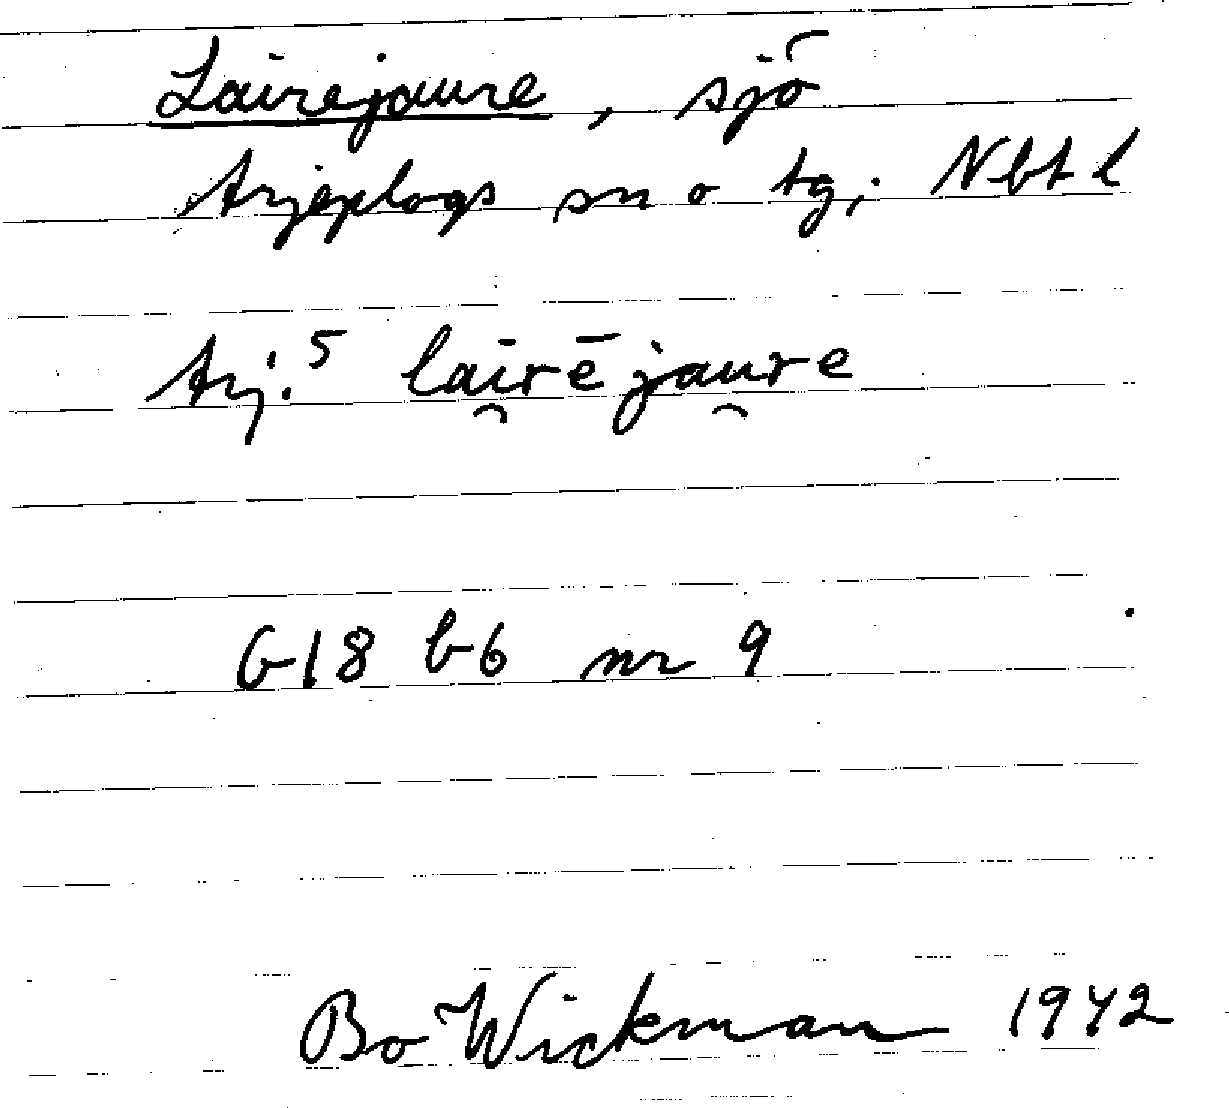 Lairejaure, sjö
Arjeplogs sn o tg; Nbt l
Arj.⁵ lāi̯rējau̯re
G18 b6 nr 9
Bo Wickman 1942